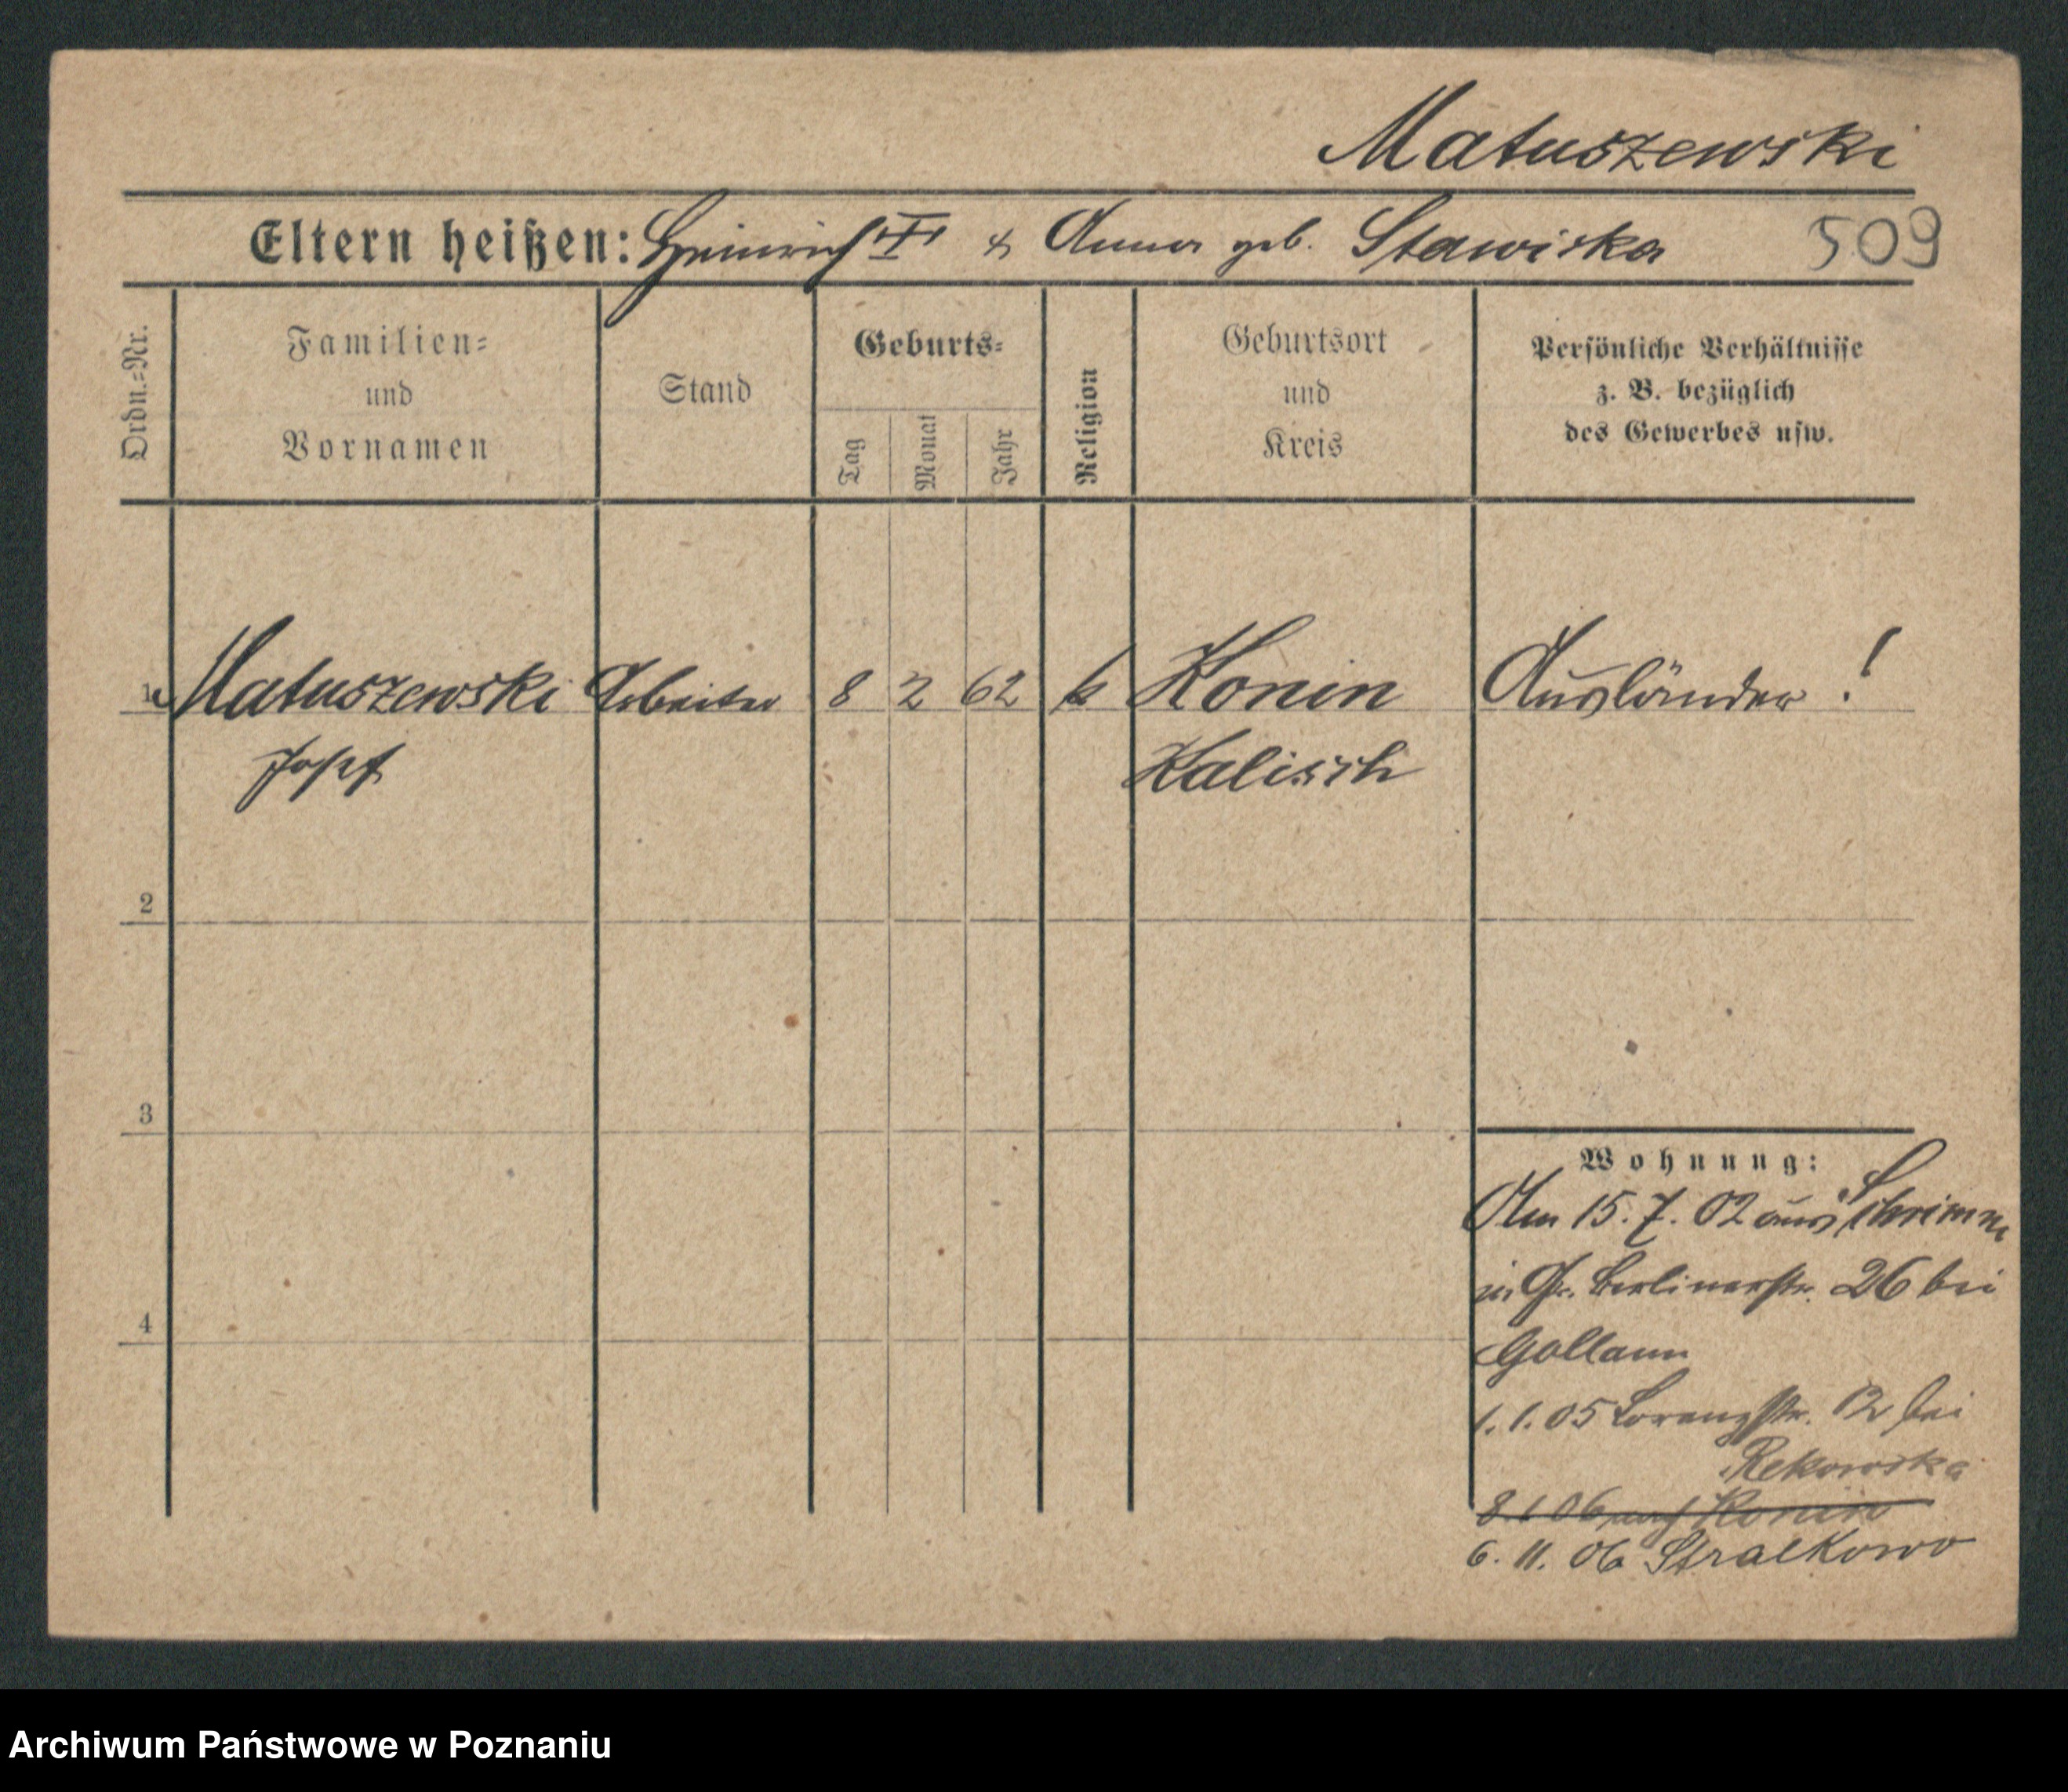 Matuszewski
Eltern heißen: Heinrich & Anna geb. Stawiska 509
Ordn.=Nr.
Familien=
und
Vornamen
Stand
Geburts=
Tag
Monat
Jahr
Religion
Geburtsort
und
Kreis
Persönliche Verhältnisse
z. B. bezüglich
des Gewerbes usw.
1 Matuszewski Arbeiter 8 2 62 k Konin Ausländer !
Josef Kalisch
2
3
4
Wohnung:
Am 15. 7. 02 aus Schrimm
in Gr. Berlinerstr. 26 bei
Gollann
1. 1. 05 Lorenzstr. 12 bei
Rekowska
8 1 06 nach Konin
6. 11. 06 Stralkowo
Archiwum Państwowe w Poznaniu